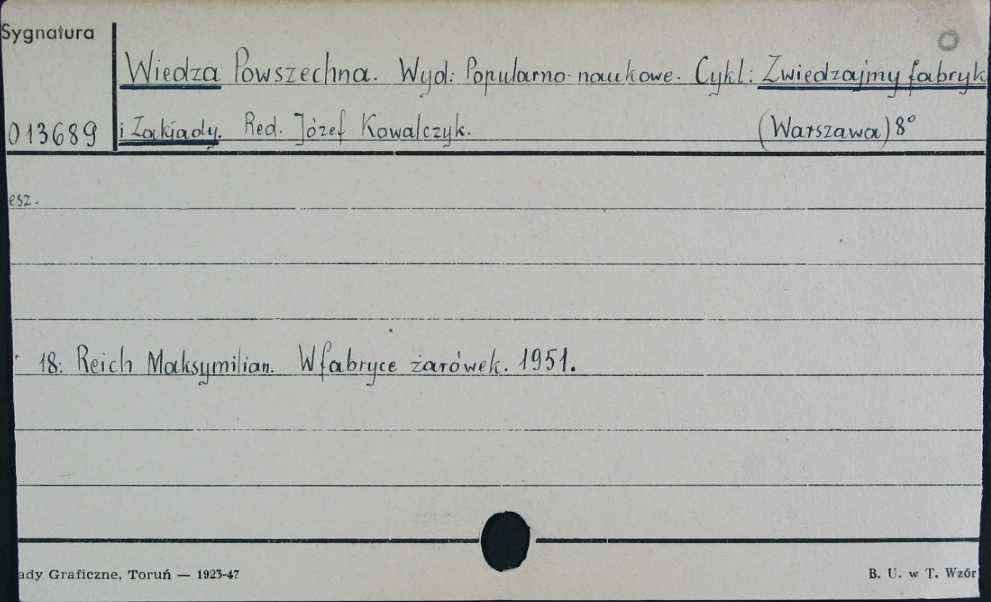 Sygnatura
Wiedza Powszechna. Wyd: Popularno-naukowe. Cykl: Zwiedzajmy fabryk
013689 i Zakłady. Red. Józef Kowalczyk. (Warszawa) 8°
esz.
18: Reich Maksymilian. W fabryce żarówek. 1951.
ady Graficzne, Toruń — 1923-47 B. U. w T. Wzór